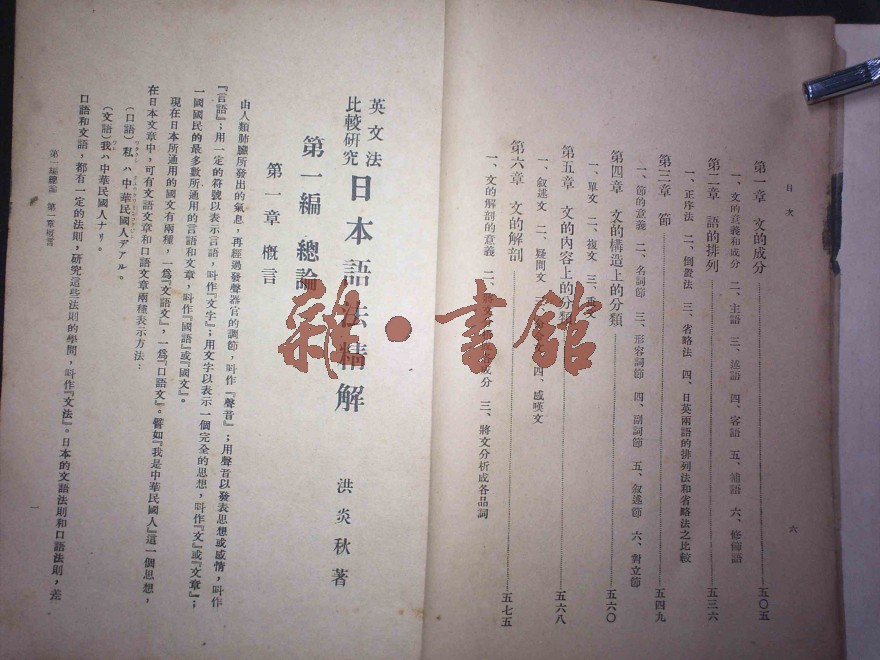 目次
六
第一章 文的成分 五〇五
一、文的意義和成分 二、主語 三、述語 四、客語 五、補語 六、修飾語
第二章 語的排列 五三六
一、正序法 二、倒置法 三、省略法 四、日英兩語的排列法和省略法之比較
第三章 節 五四九
一、節的意義 二、名詞節 三、形容詞節 四、副詞節 五、叙述節 六、對立節
第四章 文的構造上的分類 五六〇
一、單文 二、複文 三、
第五章 文的內容上的分類 五六八
一、叙述文 二、疑問文 三、 四、感嘆文
第六章 文的解剖 五七五
一、文的解剖的意義 二、將文 成分 三、將文分析成各品詞
英文法
比較研究
日本語法精解
洪炎秋著
第一編 總論
第一章 概言
由人類肺臟所發出的氣息，再經過發聲器官的調節，叫作『聲音』；用聲音以發表思想或感情，叫作
『言語』；用一定的符號以表示言語，叫作『文字』；用文字以表示一個完全的思想，叫作『文』或『文章』；
一國國民的最多數所通用的言語和文章，叫作『國語』或『國文』。
現在日本所通用的國文有兩種，一爲『文語文』，一爲『口語文』。譬如『我是中華民國人』這一個思想，
在日本文章中，可有文語文章和口語文章兩種表示方法：
（口語）私ハ中華民國人デアル。
（文語）我ハ中華民國人ナリ。
口語和文語，都有一定的法則，研究這些法則的學問，叫作『文法』。日本的文語法則和口語法則，差
第一編總論 第一章概言
一
雜·書館